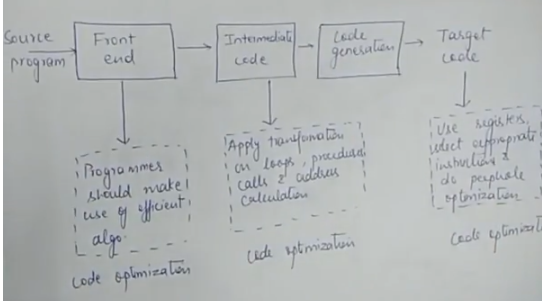 Source
program
Front
end
Intermediate
code
Code
generation
Target
code
Programmer
should make
use of efficient
algo.
code optimization
Apply transformation
on loops, procedural
calls & address
calculation
code optimization
Use registers,
select appropriate
instructions &
do peephole
optimization
code optimizati